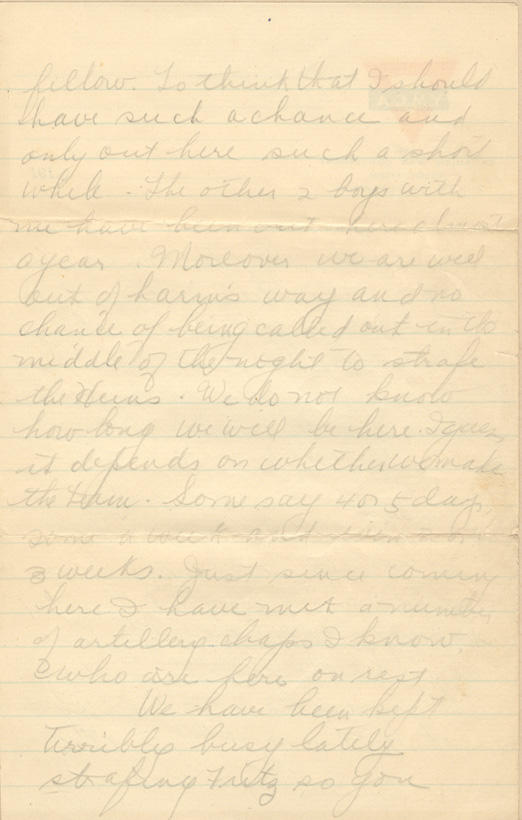 fellow. To think that I should
have such a chance and
only out here such a short
while. The other 2 boys with
me have been out here almost
a year. Moreover we are well
out of harm's way and no
chance of being called out in the
middle of the night to strafe
the Huns. We do not know
how long we will be here. I guess
it depends on whether we make
the team. Some say 4 or 5 days,
some a week and
3 weeks. Just since coming
here I have met a number
of artillery chaps I know,
who are here on rest
We have been kept
terribly busy lately
strafing Fritz so you